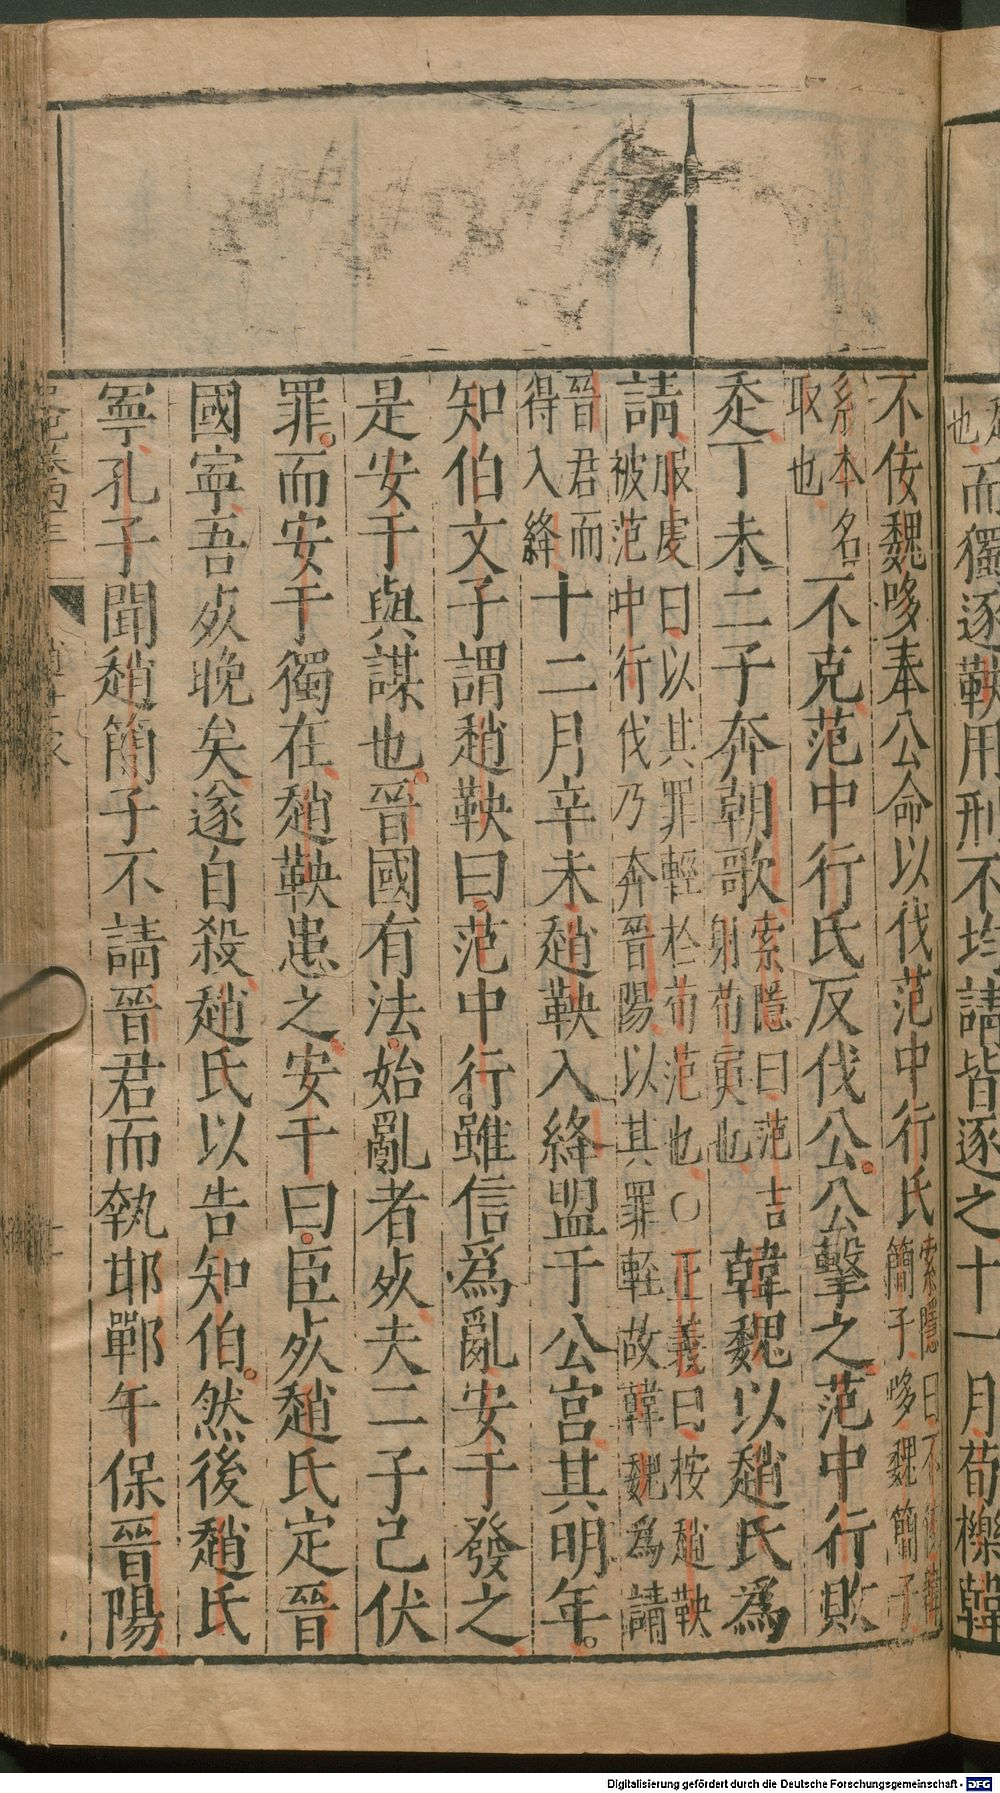 也而獨逐鞅用刑不均請皆逐之十一月荀櫟韓
不佞魏哆奉公命以伐范中行氏索隱曰不佞韓簡子哆魏簡子
系本名取也不克范中行氏反伐公公擊之范中行敗
走丁未二子奔朝歌索隱曰范吉射荀寅也韓魏以趙氏爲
請服虔曰以其罪輕於荀范也○正義曰按趙鞅被范中行伐乃奔晉陽以其罪輕故韓魏為請
晉君而得入絳十二月辛未趙鞅入絳盟于公宮其明年
知伯文子謂趙鞅曰范中行雖信爲亂安于發之
是安于與謀也晉國有法始亂者死夫二子已伏
罪而安于獨在趙鞅患之安于曰臣死趙氏定晉
國寍吾死晚矣遂自殺趙氏以告知伯然後趙氏
寍孔子聞趙簡子不請晉君而執邯鄲午保晉陽
Digitalisierung gefördert durch die Deutsche Forschungsgemeinschaft - DFG